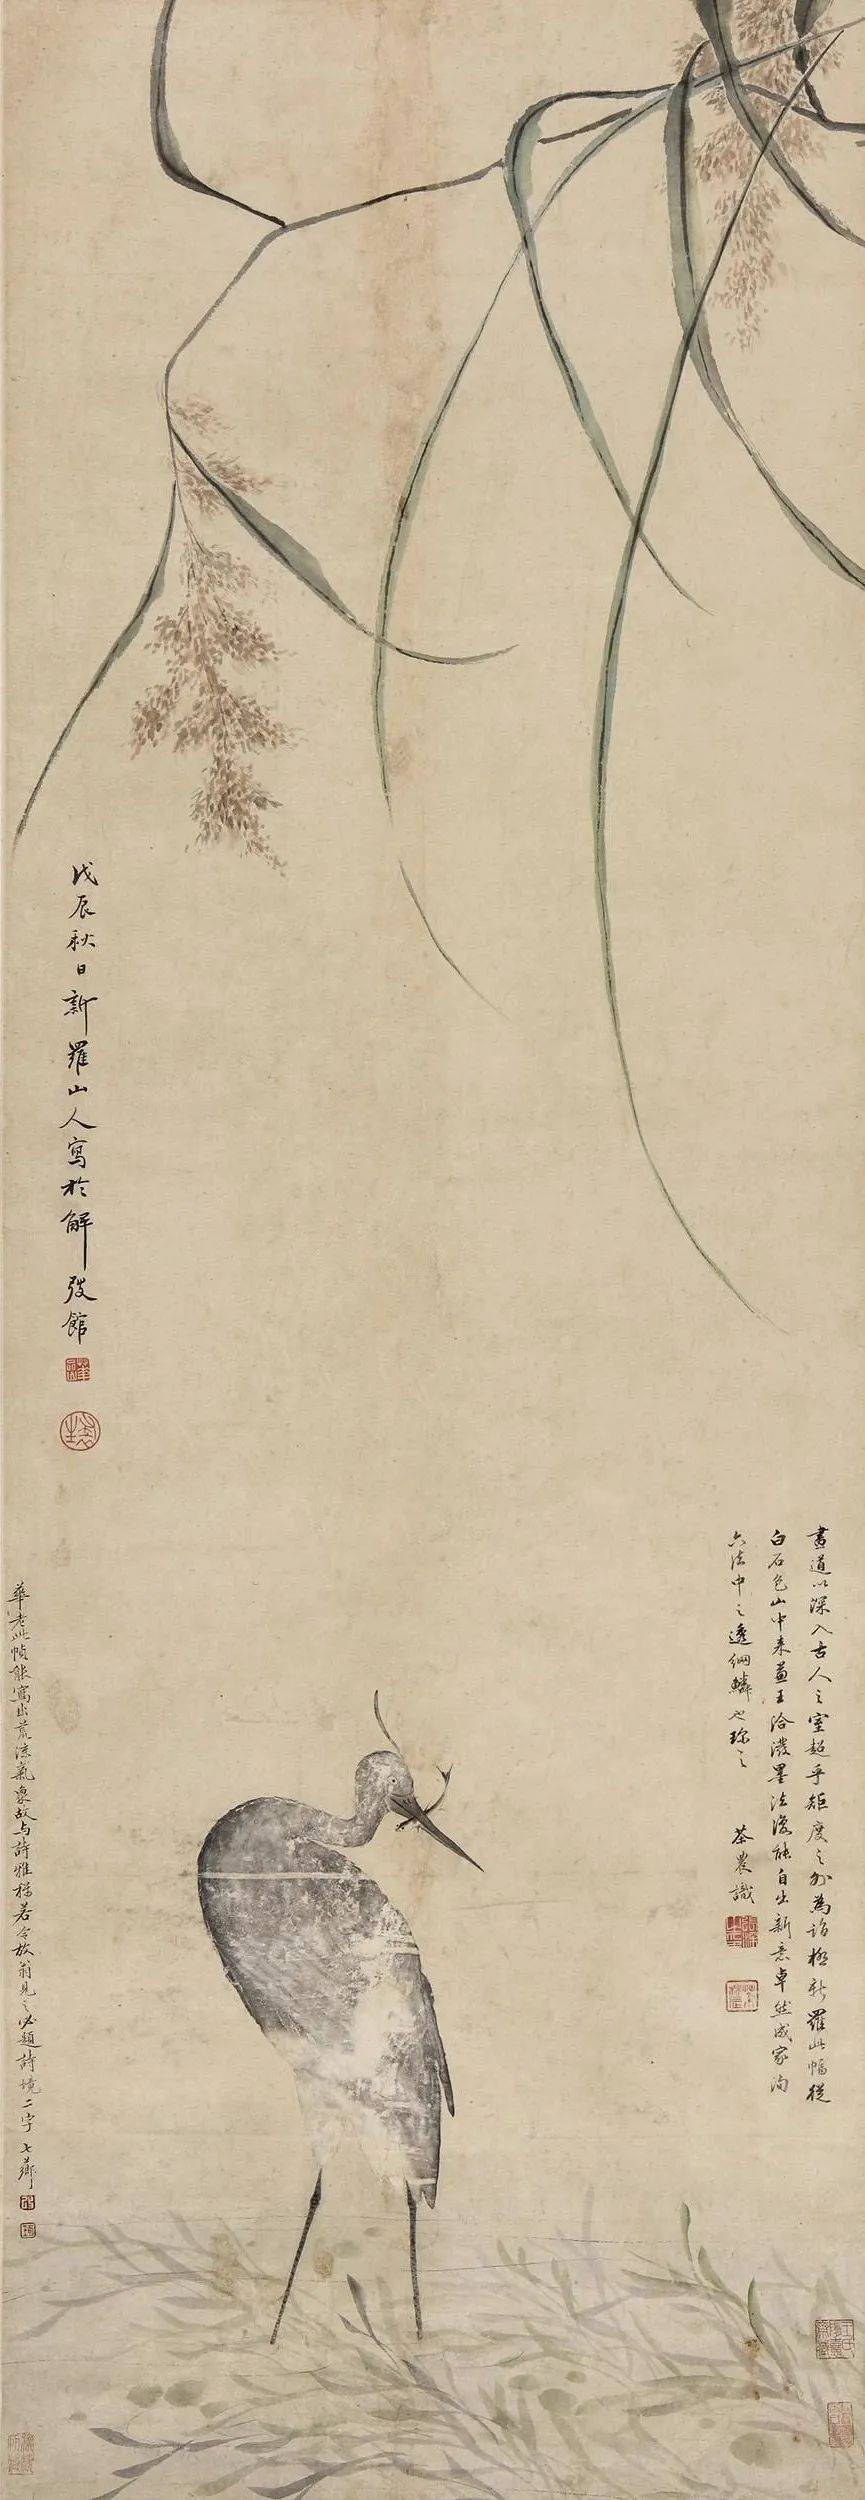 畫道以深入古人之室超乎矩度之外為詣極新羅此幅從
白石色山中來蓋王洽潑墨法後能自出新意卓然成家洵
六法中之透網鱗也珍之
茶農識
戊辰秋日新羅山人寫於解弢館
華老此幀能寫出荒涼氣象故与詩雅稱若令放翁見之必題詩境二字 七薌